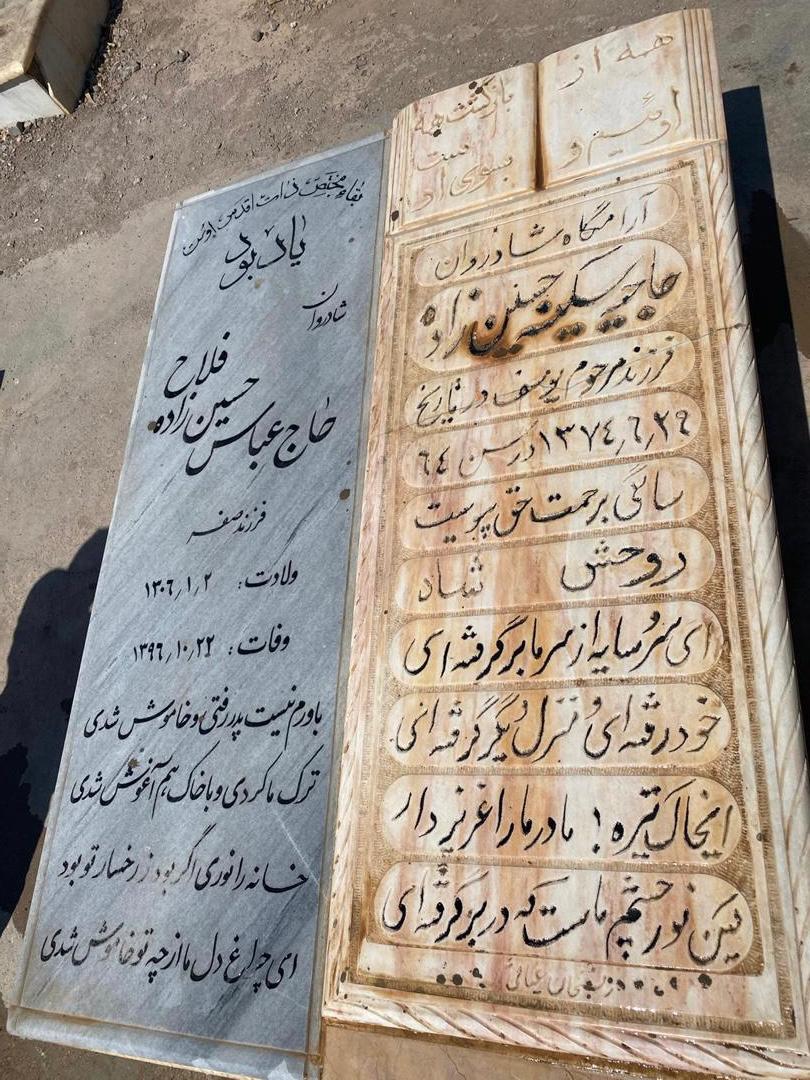 همه از
اوئیم و
بازگشت همه
بسوی اوست
آرامگاه شادروان
حاجیه سکینه حسین زاده
فرزند مرحوم یوسف در تاریخ
۱۳۷٤٫۶٫۲۹ در سن ۶٤
سالگی برحمت حق پیوست
روحش شاد
ای سرو سایه از سر ما برگرفته ای
خود رفته ای و منزل دیگر گرفته ای
ایخاک تیره! مادر ما را عزیز دار
این نور چشم ماست که در بر گرفته ای
بقاء مختص ذات اقدس اوست
یادبود
شادروان
حاج عباس حسین زاده فلاح
فرزند صفر
ولادت: ۱۳۰۶٫۱٫۲
وفات: ۱۳۹۶٫۱۰٫۲۲
باورم نیست پدر رفتی و خاموش شدی
ترک ما کردی و با خاک هم آغوش شدی
خانه را نوری اگر بود ز رخسار تو بود
ای چراغ دل ما از چه تو خاموش شدی